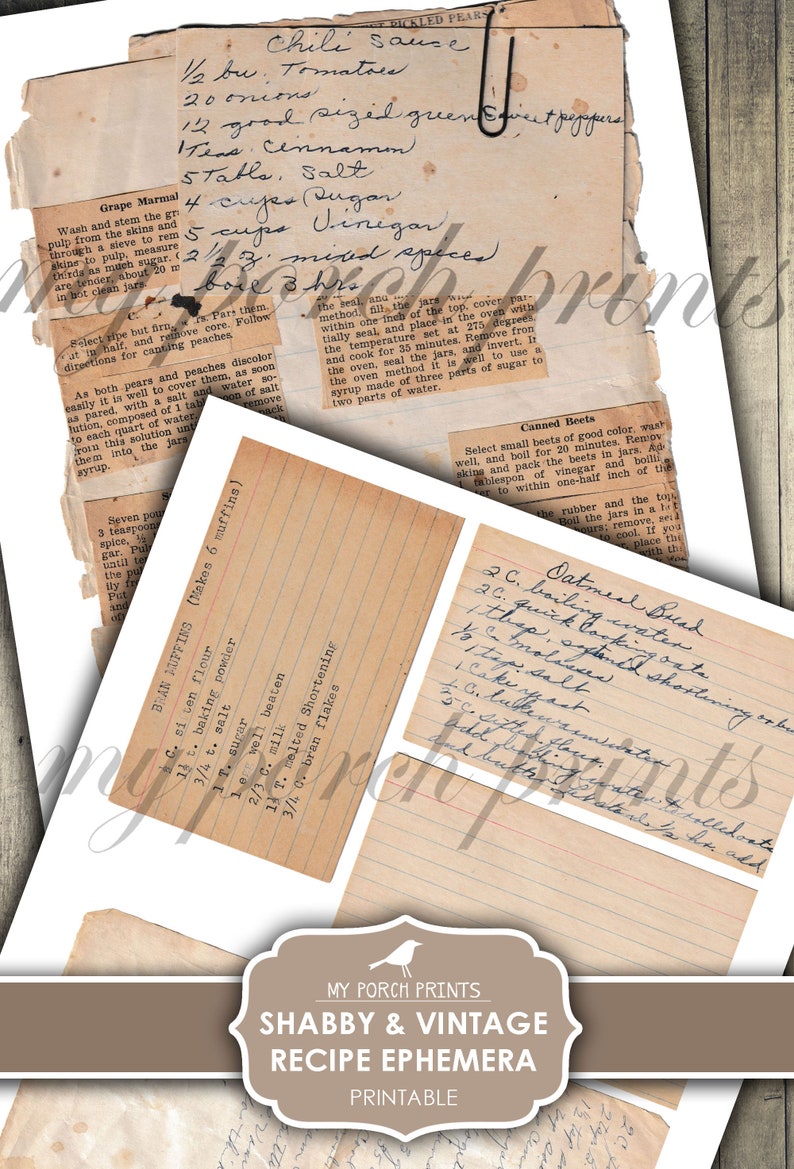 EST PICKLED PEARS
Chili Sauce
1/2 bu. Tomatoes
20 onions
12 good sized green sweet peppers
1 Teas. Cinnamon
5 Tabls. Salt
4 cups Sugar
5 cups Vinegar
2 1/2 z. mixed spices
boil 3 hrs
Grape Marmal
Wash and stem the gra
pulp from the skins and
through a sieve to rem
skins to pulp, measure
thirds as much sugar. C
are tender, about 20 mi
in hot clean jars.
C
Select ripe but firm, rs. Pars them,
cut in half, and remove core. Follow
directions for canning peaches.
As both pears and peaches discolor
easily it is well to cover them, as soon
as pared, with a salt and water so-
lution, composed of 1 tablespoon of salt
to each quart of water. remove
from this solution until pack
them into the jars
syrup.
the seal, and
method, fill the jars with
within one inch of the top, cover par-
tially seal, and place in the oven with
the temperature set at 275 degrees,
and cook for 35 minutes. Remove from
the oven, seal the jars, and invert. If
the oven method it is well to use a
syrup made of three parts of sugar to
two parts of water.
Canned Beets
Select small beets of good color, wash
well, and boil for 20 minutes. Remov
skins and pack the beets in jars. Add
tablespoon of vinegar and boilin
ter to within one-half inch of the
the rubber and the top,
Boil the jars in a hot
ours; remove, seal
to cool. If you
place the
with the
S
Seven poun
3 teaspoons
spice, ½
gar. Pul
until ten
the pul
ily fro
Put
and
of
my porch prints
BRAN MUFFINS (Makes 6 muffins)
½ C. si ten flour
1½ t. baking powder
3/4 t. salt
1 T. sugar
1 egg well beaten
2/3 C. milk
1½ T. melted Shortening
3/4 C. bran flakes
Oatmeal Bread
2 C. boiling water
2 C. quick cooking oats
1 tbsp. shortening or bu
1/2 C. molasses
1 tsp. salt
1 cake yeast
C. lukewarm water
5 C. sifted flour
add boiling water to rolled oats
and butter, let stand 1/2 hr. add
my porch prints
MY PORCH PRINTS
SHABBY & VINTAGE
RECIPE EPHEMERA
PRINTABLE